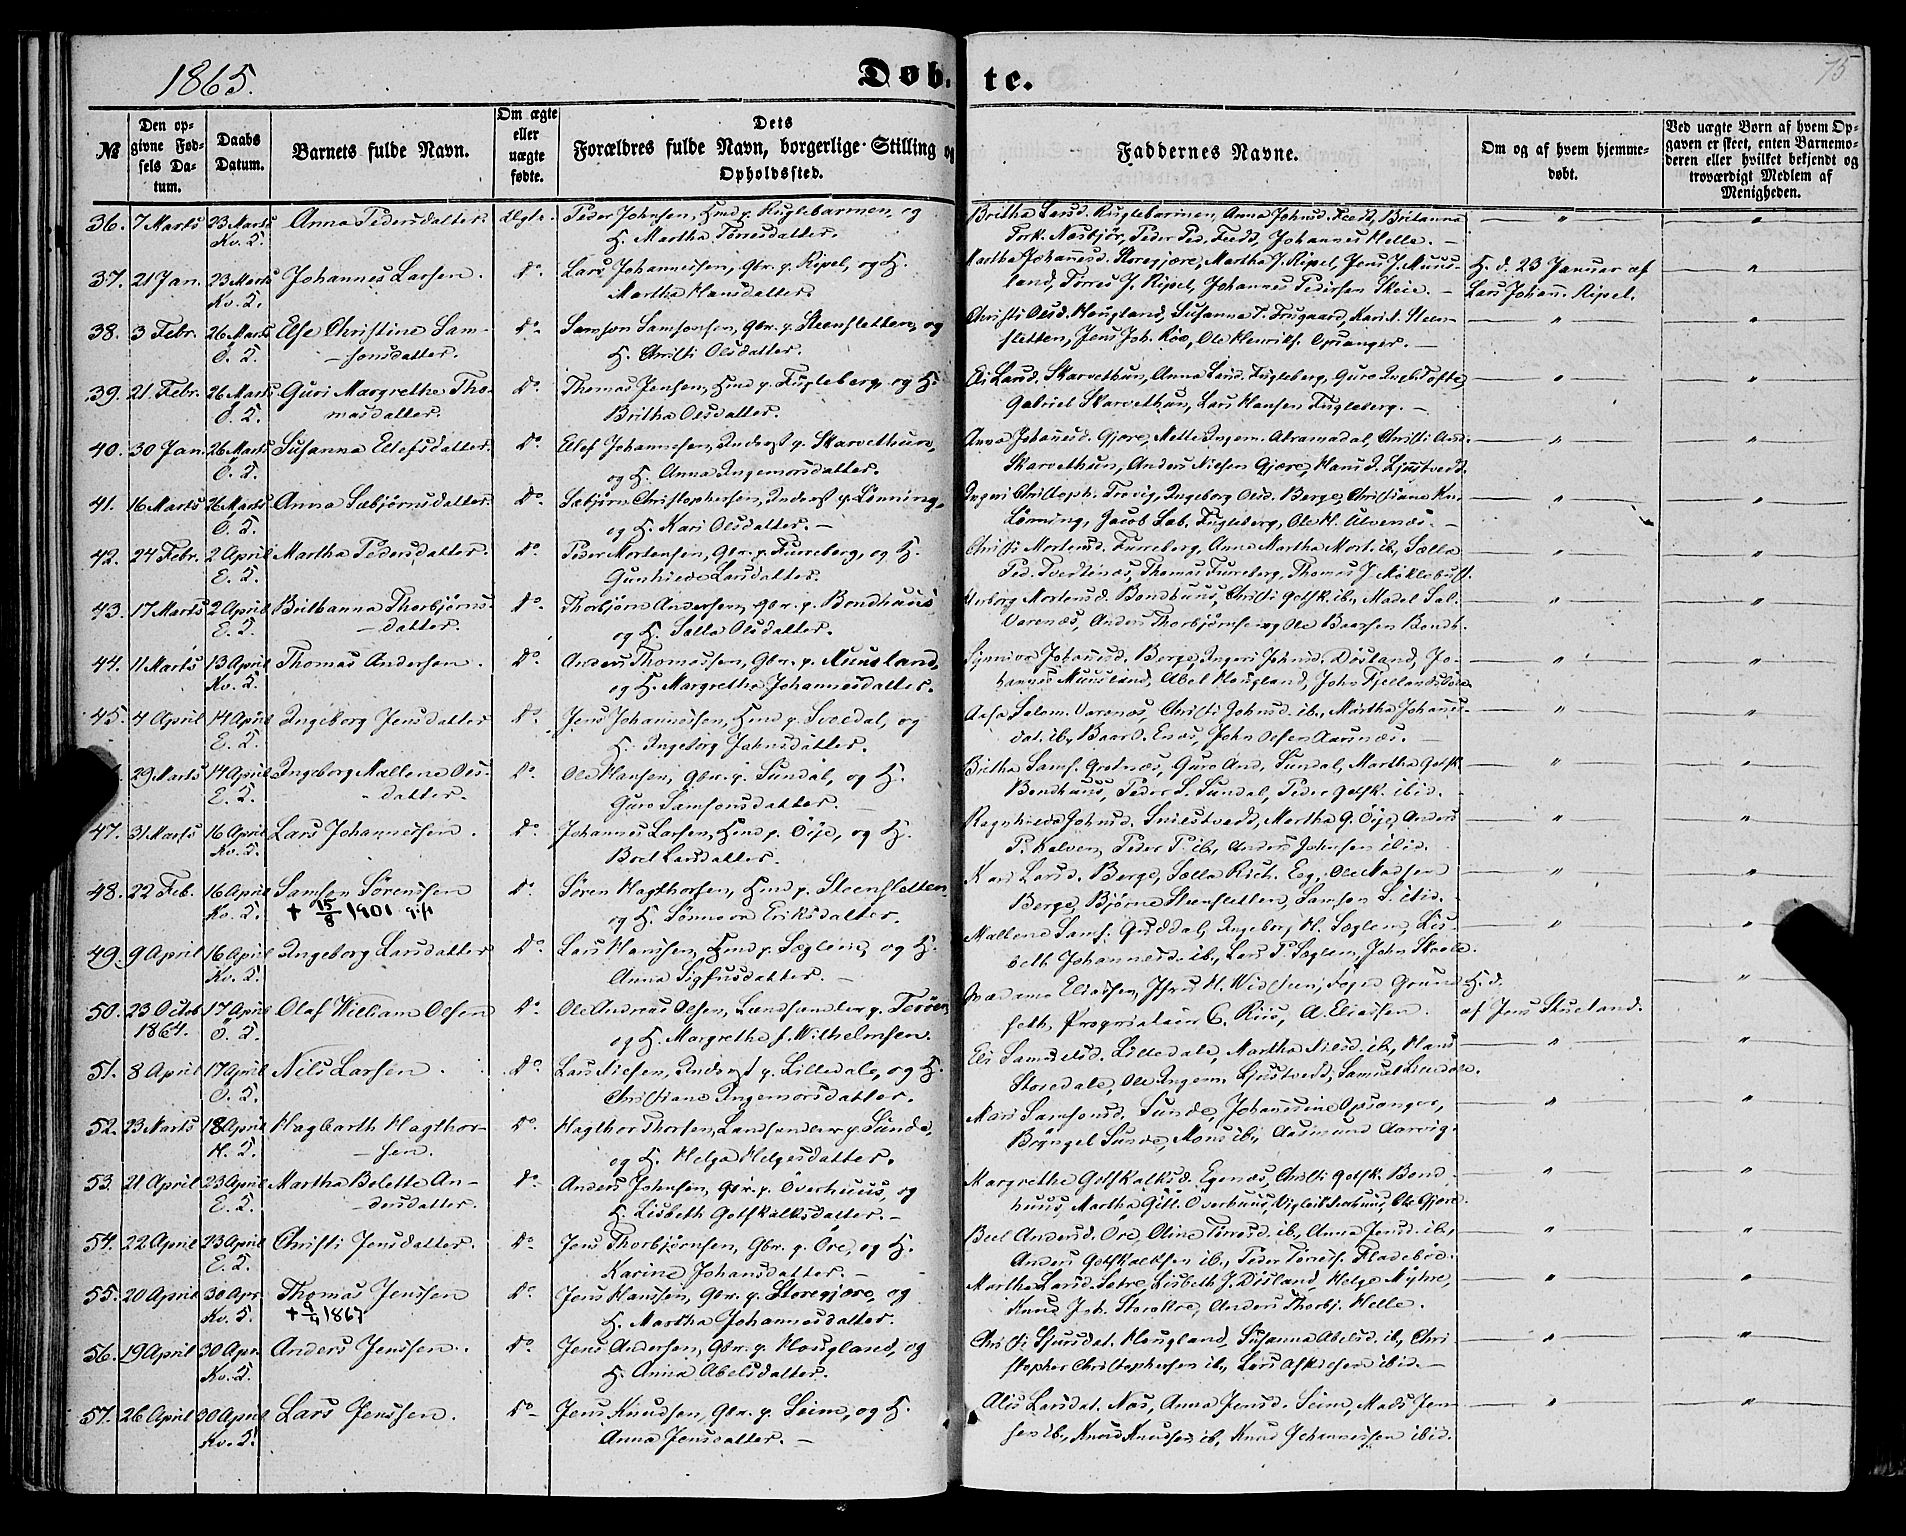 1865.
Døb-
te.
75
№
Den op-
givne Fød-
sels Da-
tum.
Daabs
Datum.
Barnets fulde Navn.
Om ægte
eller
uægte
fødte.
Dets
Forældres fulde Navn, borgerlige Stilling og
Opholdssted.
Faddernes Navne.
Om og af hvem hjemme-
døbt.
Ved uægte Børn af hvem Op-
gaven er skeet, enten Barnemo-
deren eller hvilket bekjendt og
troværdigt Medlem af
Menigheden.
36. 7 Marts 23 Marts Anna Pedersdatter. Ægte. Peder Johnsen, Hmd p. Fuglebærmen, og
Kv. T. H. Martha Torresdatter.
Britha Larsd. Anna Johnsd. Britanna
Tork. Næsbjør, Peder Ped. Johannes Helle. —
37. 21 Jan. 23 Marts Johannes Larsen. do. Lars Johannessen, Gbr. p. Ripel, og H.
Kv. T. Martha Hansdatter.
Martha Johannesd. Storegjære, Martha J. Ripel, Jens J. Muus- H. d. 23 Januar af
land, Torres J. Ripel, Johannes Pedersen Skeie. — Lars Johan. Ripel.
38. 3 Febr. 26 Marts Else Christine Sam- do. Samson Samsonsen, Gbr. p. Steensletten, og
Ö. T. sonsdatter. H. Christi Olsdatter.
Christi Olsd. Hougland, Susanna T. Kari A. Steen-
sletten, Jens Joh. Röe, Ole Henriks. Opsanger. —
39. 21 Febr. 26 Marts Guri Margrethe Tho- do. Thomas Jensen, Hmd p. Fugleberg, og H.
Ö. T. masdatter. Britha Olsdatter.
Eli Larsd. Skarvethun, Anna Larsd. Fugleberg, Guro Tofte,
Gabriel Skarvethun, Lars Hansen Fugleberg. —
40. 30 Jan. 26 Marts Susanna Elefsdatter do. Elef Johannesen, Inderst p. Skarvethun,
Ö. T. og H. Anna Ingemorsdatter.
Anna Johannesd. Gjære, Mette Ingem. Christi And.
Skarvethun, Anders Nielsen Gjære, Hans Ljustvedt.
41. 16 Marts 26 Marts Anna Sæbjørnsdatter do. Sæbjørn Christophersen, Inderst p. Lønning,
Ö. T. og H. Kari Olsdatter. —
Ingeri Christoph. Ingeborg Olsd. Berge, Christiane
Lønning, Jacob Sæb. Fugleberg, Ole H. Ulvenæs. —
42. 24 Febr. 2 April Martha Pedersdatter. do. Peder Mortensen, Gbr. p. Furreberg, og H.
E. T. Gunhilde Larsdatter.
Christi Mortensd. Furreberg, Anna Martha Mort. ib., Sælla
Ped. Tvedtenæs, Thomas Furreberg, Thomas J. Møklebust.
43. 17 Marts 2 April Brithanna Thorbjørns- do. Thorbjørn Andersen, Gbr. p. Bondhuus
E. T. datter. og H. Sælla Olsdatter.
Mortensd. Bondhuus, Christi Gotsk. ib., Madel Sal.
Varenæs, Anders Thorbjørnsen og Ole Baarsen Bondh.
44. 11 Marts 13 April Thomas Andersen. do. Anders Thomassen, Gbr. p. Muusland,
Kv. T. og H. Margrethe Johannesdatter.
Synniva Johannesd. Berge, Ingeri Johnsd. Døsland, Jo-
hannes Muusland, Abel Hougland, John
45. 4 April 14 April Ingeborg Jensdatter do. Jens Johannessen, Hmd p. og
E. T. H. Ingeborg Johnsdatter.
Salom. Varenæs, Christi Johnsd. ib., Martha Johannes-
dat. ib., Baar O. Enes, John Olsen —
29 Marts 14 April Ingeborg Mallene Ols- do. Ole Hansen, Gbr. p. Sundal, og H.
E. T. datter. Guro Samsonsdatter. —
Britha Sams. Guro And. Sundal, Martha Gotsk.
Bondhuus, Peder S. Sundal, Peder Gotsk. ibid. —
47. 31 Marts 16 April Lars Johannessen. do. Johannes Larsen, Hmd p. Öije, og H.
Kv. T. Boel Larsdatter.
Ragnhilde Johnsd. Martha G. Öije, Anders
P. Kalven, Peder P. ib., Anders Johnsen ibid.
48. 22 Feb. 16 April Samson Sørenssen do. Søren Hagthorsen, Hmd p. Steensletten
Kv. T. + 15/8 1901 gift og H. Sønnove Eriksdatter.
Kari Larsd. Berge, Sælla Rich. Eg, Ole
Berge, Bjørne Steensletten, Samson S. ibid. —
49. 9 April 16 April Ingeborg Larsdatter do. Lars Hanssen, Hmd p. Seglem, og H.
Kv. T. Anna Sigfusdatter. —
Mallene Sams. Guddal, Ingeborg H. Seglem, Lis-
beth Johannesd. ib., Lars P. Seglem, John
50. 23 Octob. 17 April Olaf William Olsen do. Ole Andreas Olsen, Landhandler p. Terøen,
1864. Ö. T. og H. Margrethe f. Wilhelmsen.
Madame Eliassen, Jfru H. H. d.
Proprietair C. Riis, A. Eliassen. af Jens
51. 8 April 17 April Nils Larsen. do. Lars Nielsen, Inderst p. Lilledale, og H.
Ö. T. Christiane Ingemorsdatter.
Eli Samuelsd. Lilledale, Martha Nilsd. ib., Hans
Storedale, Ole Ingem. Ljustvedt, Samuel Lilledale.
52. 23 Marts 18 April Hagbarth Hagthor- do. Hagthor Thorsen, Landhandler p. Sunde,
H. T. sen. og H. Helga Helgesdatter.
Mari Samsonsd. Sunde, Johannesine Opsanger,
Bryngel Sunde, Mons ib., Aasmund Aarvig.
53. 21 April 23 April Martha Bolette An- do. Anders Johnsen, Gbr. p. Överhuus, og
E. T. dersdatter. H. Lisbeth Gotskalksdatter. —
Margrethe Gotskalksd. Egenæs, Christi Gotsk. Bond-
huus, Martha Överhuus, Ole Gjære.
54. 22 April 23 April Christi Jensdatter. do. Jens Thorbjørnsen, Gbr. p. Öre, og H.
E. T. Karine Johansdatter. —
Boel Andersd. Öre, Oline Torresd. ib., Anna Jensd. ib.,
Anders Gotskalksen ib., Peder Torres. Fladebøe.
55. 20 April 30 Apr. Thomas Jenssen do. Jens Hanssen, Gbr. p. Storegjære, og
Kv. T. + 9/4 1867 H. Martha Johannesdatter.
Martha Larsd. Lisbeth J. Døsland, Helge
Knud Joh. Anders Thorbj. Helle.
56. 19 April 30 Apr. Anders Jenssen. do. Jens Andersen, Gbr. p. Hougland, og
Kv. T. H. Anna Abelsdatter.
Christi Sjursdat. Hougland, Susanna Abelsd. ib., Chri-
stopher Christophersen ib., Lars ibid. —
57. 26 April 30 April Lars Jenssen. do. Jens Knudsen, Gbr. p. Seim, og H.
Kv. T. Anna Jensdatter. —
Alis Larsdat. Næs, Anna Jensd. Seim, Mads Jen-
sen ib., Knud Knudsen ib., Knud Johannessen ibid.